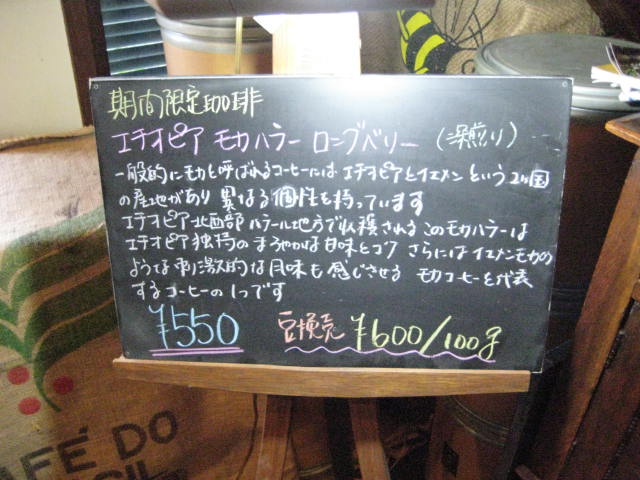 期間限定珈琲
エチオピア モカハラー ロングベリー (深煎り)
一般的にモカと呼ばれるコーヒーには エチオピアとイエメン という2ヶ国
の産地があり 異なる個性を持っています
エチオピア北西部 ハラール地方で収穫される このモカハラーは
エチオピア独特の まろやかな甘味とコク さらには イエメンモカの
ような刺激的な風味も感じさせる モカコーヒーを代表
するコーヒーの1つです
¥550 豆挽売 ¥600/100g
CAFÉ DO